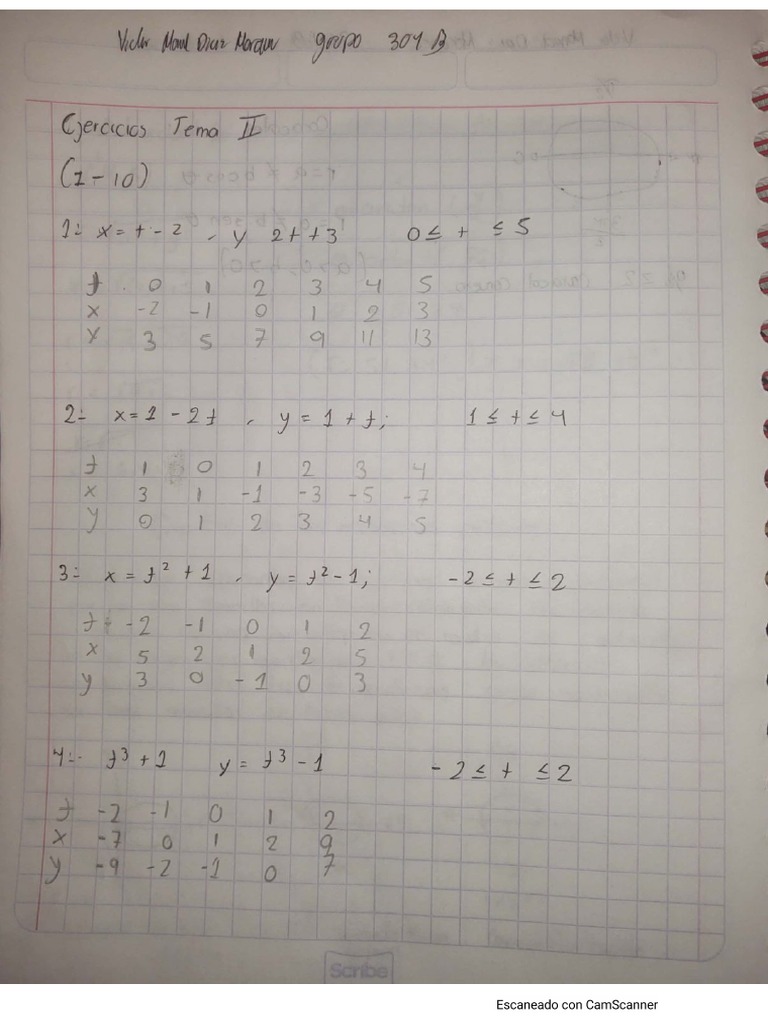 Victor Manl Diaz Moran grupo 301 B
Ejercicios Tema II
(1-10)
1:- x= t - 2 , y 2t + 3 0 ≤ t ≤ 5
t 0 1 2 3 4 5
x -2 -1 0 1 2 3
y 3 5 7 9 11 13
2:- x = 1 - 2t , y = 1 + t; 1 ≤ t ≤ 4
t 1 0 1 2 3 4
x 3 1 -1 -3 -5 -7
y 0 1 2 3 4 5
3:- x = t² + 1 , y = t² - 1; -2 ≤ t ≤ 2
t -2 -1 0 1 2
x 5 2 1 2 5
y 3 0 -1 0 3
4:- t³ + 1 y = t³ - 1 -2 ≤ t ≤ 2
t -2 -1 0 1 2
x -7 0 1 2 9
y -9 -2 -1 0 7
Scribe
Escaneado con CamScanner